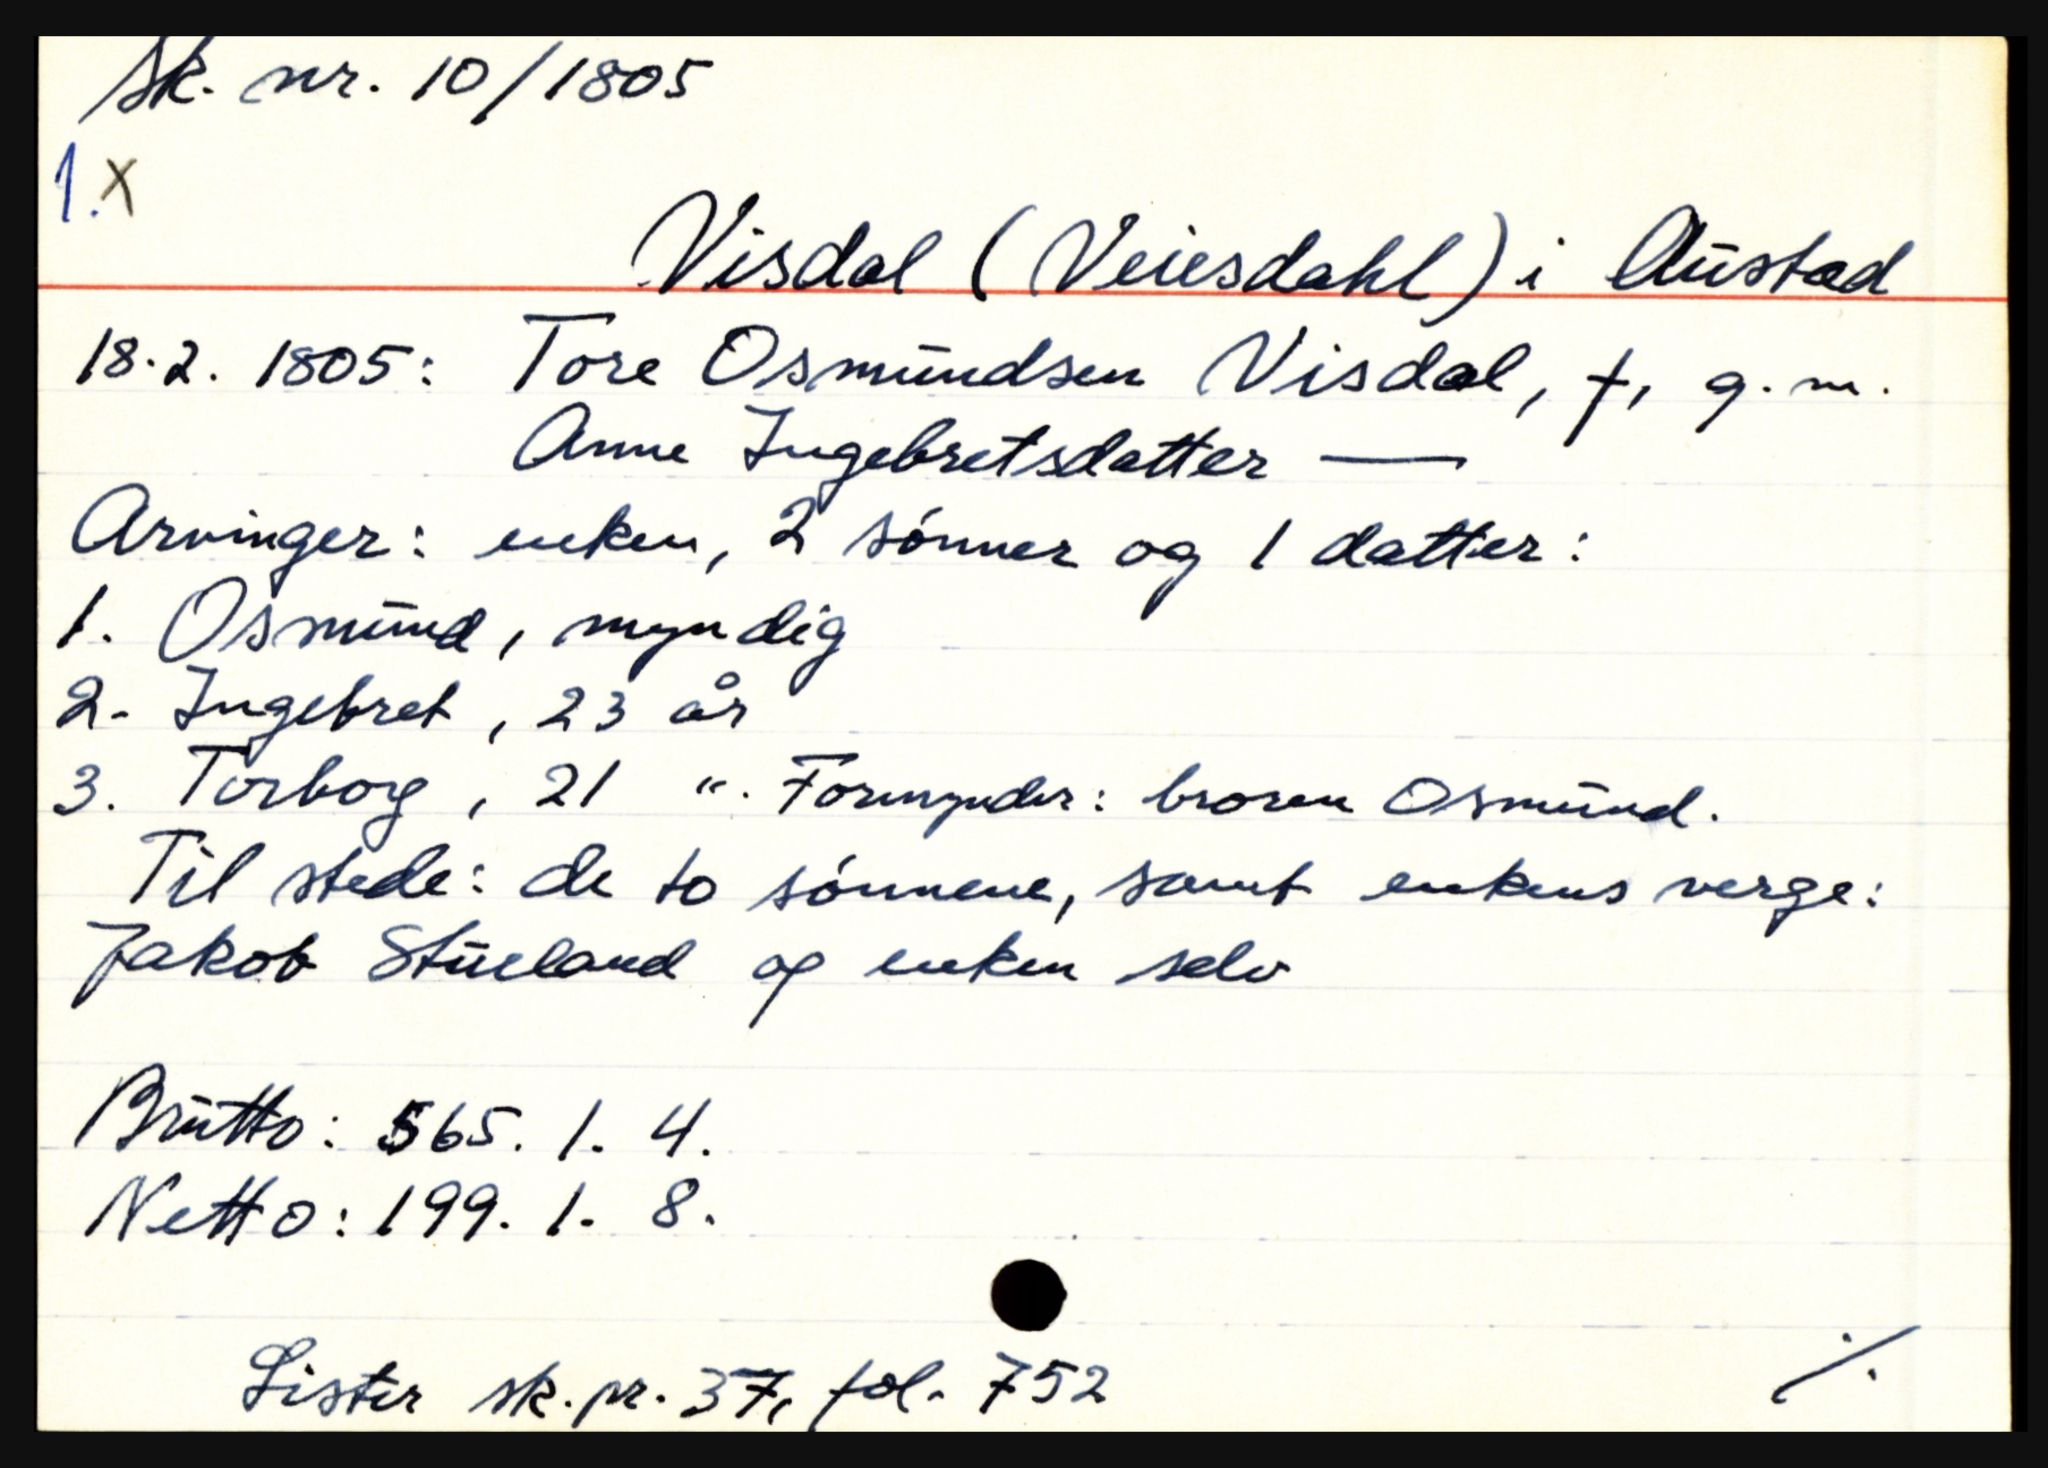 Sk. nr. 10/1805
1. X
Visdal (Veiesdahl) i Austad
18.2. 1805: Tore Osmundsen Visdal, †, g.m.
Anne Ingebretsdatter —
Arvinger: enken, 2 sønner og 1 datter:
1. Osmund, myndig
2. Ingebret, 23 år
3. Torborg, 21 ". Formynder: broren Osmund.
Til stede: de to sønnene, samt enkens verge:
Jakob Stueland og enken selv
Brutto: 565. 1. 4.
Netto: 199. 1. 8.
Lister sk.pr. 37, fol. 752
./.